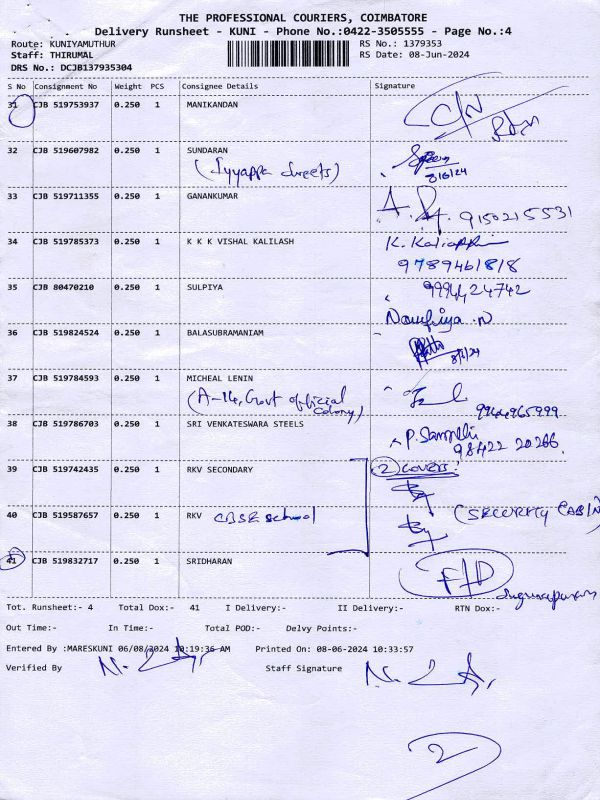 THE PROFESSIONAL COURIERS, COIMBATORE
Delivery Runsheet - KUNI - Phone No.:0422-3505555 - Page No.:4
Route: KUNIYAMUTHUR RS No.: 1379353
Staff: THIRUMAL RS Date: 08-Jun-2024
DRS No.: DCJB137935304
S No Consignment No Weight PCS Consignee Details Signature
31 CJB 519753937 0.250 1 MANIKANDAN
32 CJB 519607982 0.250 1 SUNDARAN
(Iyyappa streets) 8/6/24
33 CJB 519711355 0.250 1 GANANKUMAR
9150215531
34 CJB 519785373 0.250 1 K K K VISHAL KALILASH
9789461818
35 CJB 80470210 0.250 1 SULPIYA 9994424742
36 CJB 519824524 0.250 1 BALASUBRAMANIAM
8/6/24
37 CJB 519784593 0.250 1 MICHEAL LENIN
(A-14, Govt official
colony) 9944965999
38 CJB 519786703 0.250 1 SRI VENKATESWARA STEELS
98422 20266
39 CJB 519742435 0.250 1 RKV SECONDARY 2 COVERS:
40 CJB 519587657 0.250 1 RKV CBSE school (SECURITY CABIN)
41 CJB 519832717 0.250 1 SRIDHARAN
Tot. Runsheet:- 4 Total Dox:- 41 I Delivery:- II Delivery:- RTN Dox:-
Out Time:- In Time:- Total POD:- Delvy Points:-
Entered By :MARESKUNI 06/08/2024 10:19:36 AM Printed On: 08-06-2024 10:33:57
Verified By Staff Signature
2